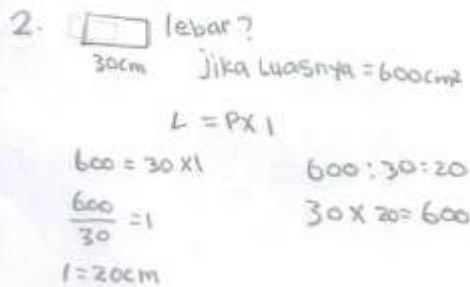 2. lebar?
30cm Jika Luasnya = 600cm²
L = P x l
600 = 30 x l 600 : 30 = 20
600/30 = l 30 x 20 = 600
l = 20cm